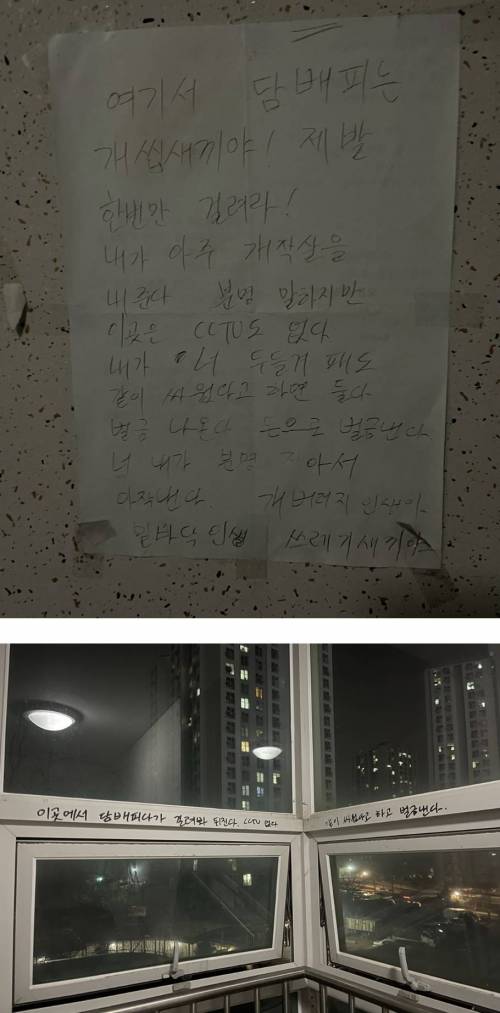 여기서 담배피는
개씹새끼야! 제발
한번만 걸려라!
내가 아주 개작살을
내준다 분명 말하지만
이곳은 CCTV도 없다
내가 너 두들겨 패도
같이 싸웠다고 하면 둘다
벌금 나온다 돈으로 벌금낸다
넌 내가 분명 잡아서
아작낸다 개버러지 인생아
밑바닥 인생 쓰레기새끼야
이곳에서 담배피다가 걸려봐 뒤진다. CCTV 없다
같이 싸웠다고 하고 벌금낸다.